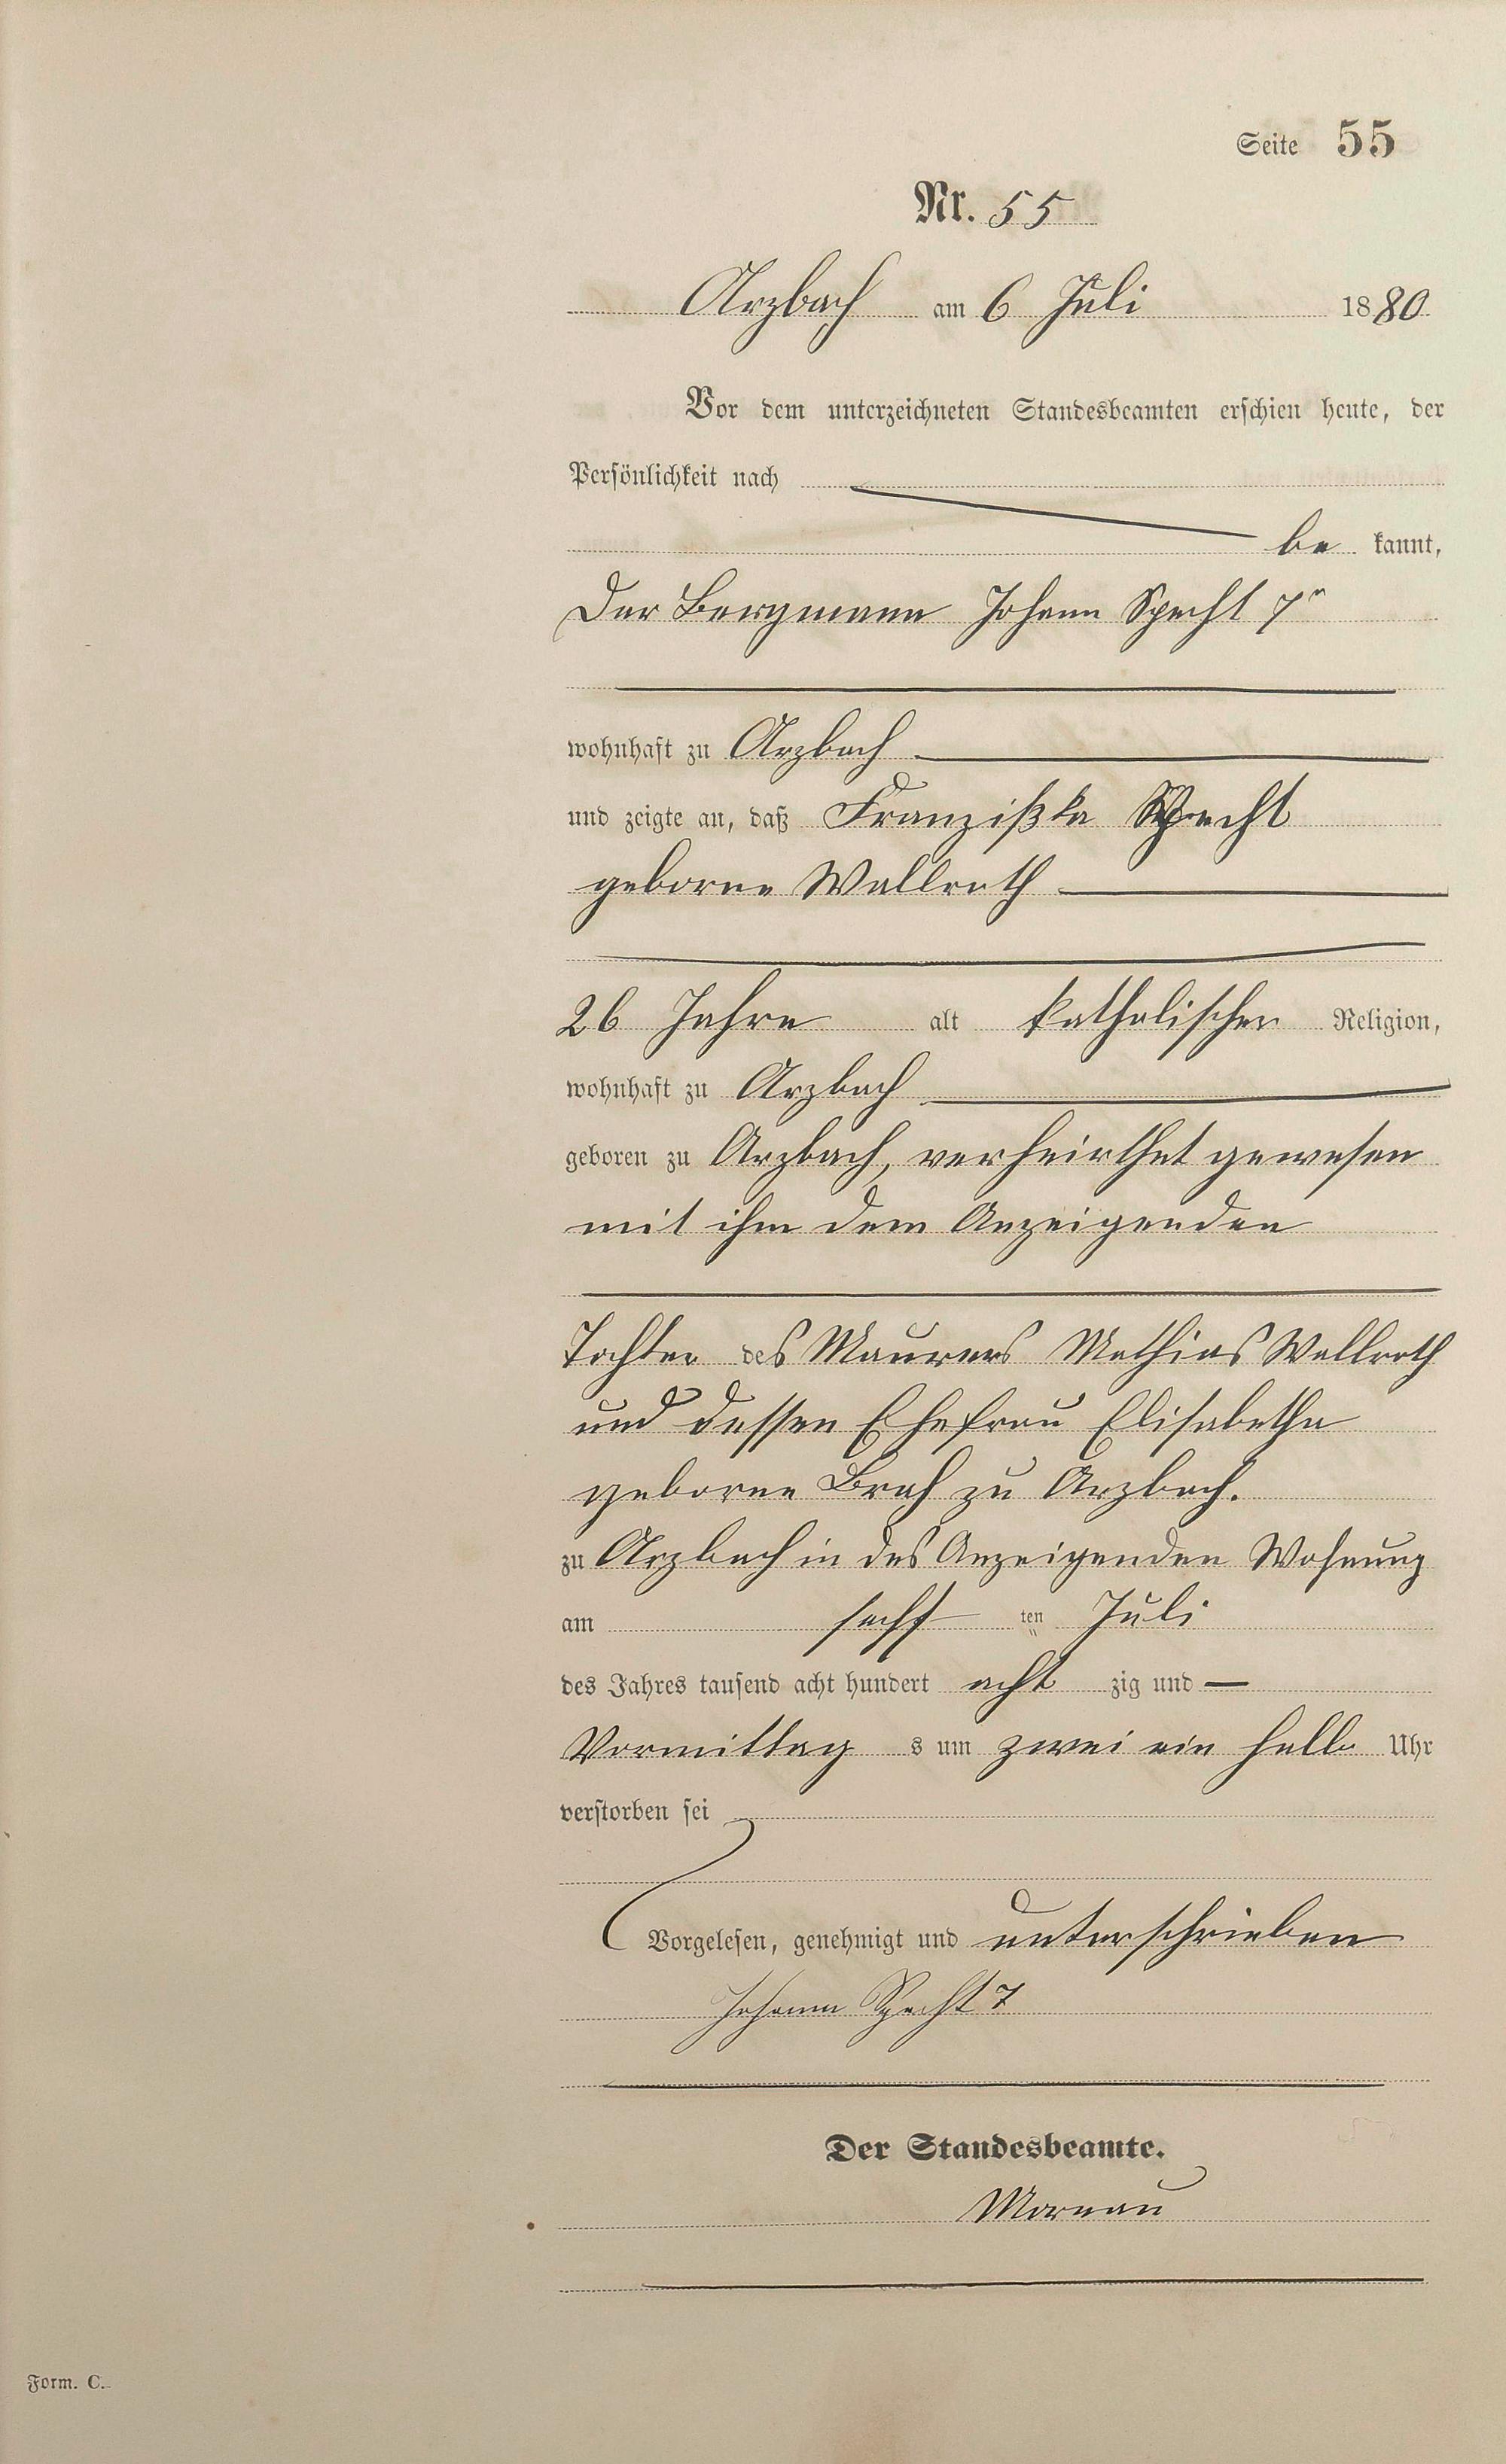 Seite 55
Nr. 55
Arzbach am 6 Juli 1880
Vor dem unterzeichneten Standesbeamten erschien heute, der
Persönlichkeit nach
be kannt,
Der Bergmann Johann Specht 7r
wohnhaft zu Arzbach
und zeigte an, daß Franzißka Specht
geborne Wallroth
26 Jahre alt katholischer Religion,
wohnhaft zu Arzbach
geboren zu Arzbach, verheirthet gewesen
mit ihm dem Anzeigenden
Tochter des Maurers Mathias Wallroth
und dessen Ehefrau Elisabetha
geborne Brah zu Arzbach.
zu Arzbach in des Anzeigenden Wohnung
am sechs ten Juli
des Jahres tausend acht hundert acht zig und
Vormittag s um zwei ein halb Uhr
verstorben sei
Vorgelesen, genehmigt und unterschrieben
Johann Specht 7
Der Standesbeamte.
Mornau
Form. C.